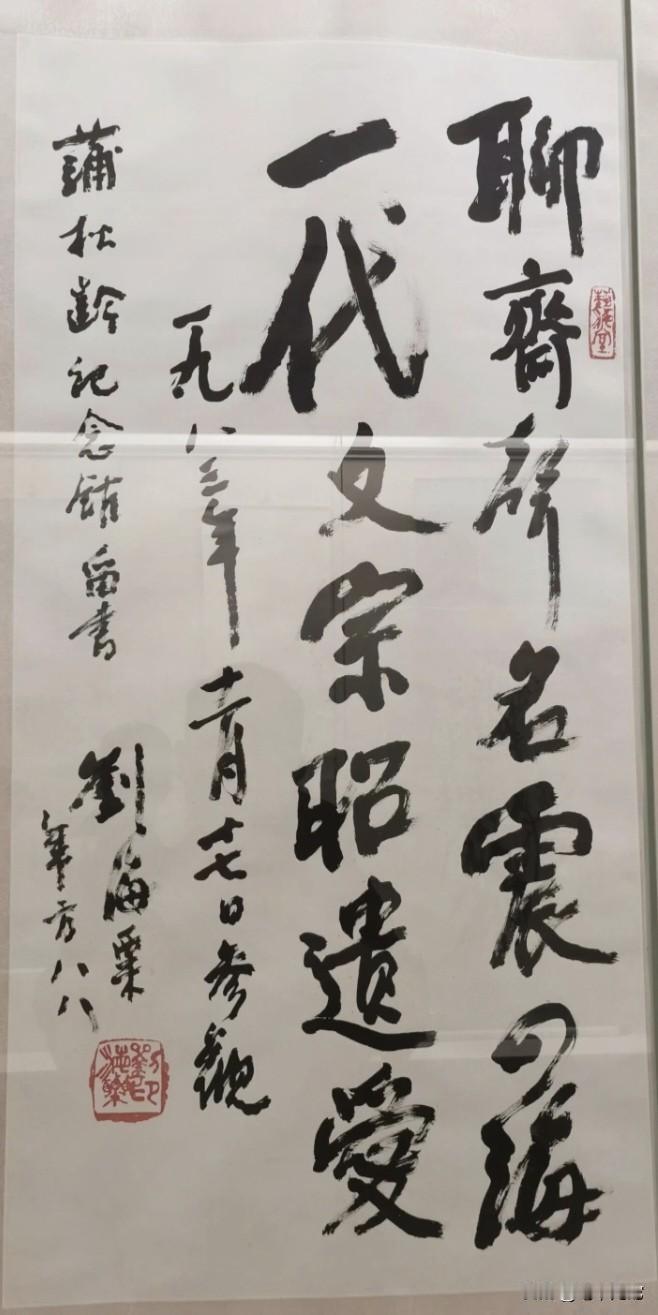 聊齋聲名震四海
一代文宗昭遺愛
一九八三年十一月十七日參觀
蒲松齡記念館留書
劉海粟
年方八八